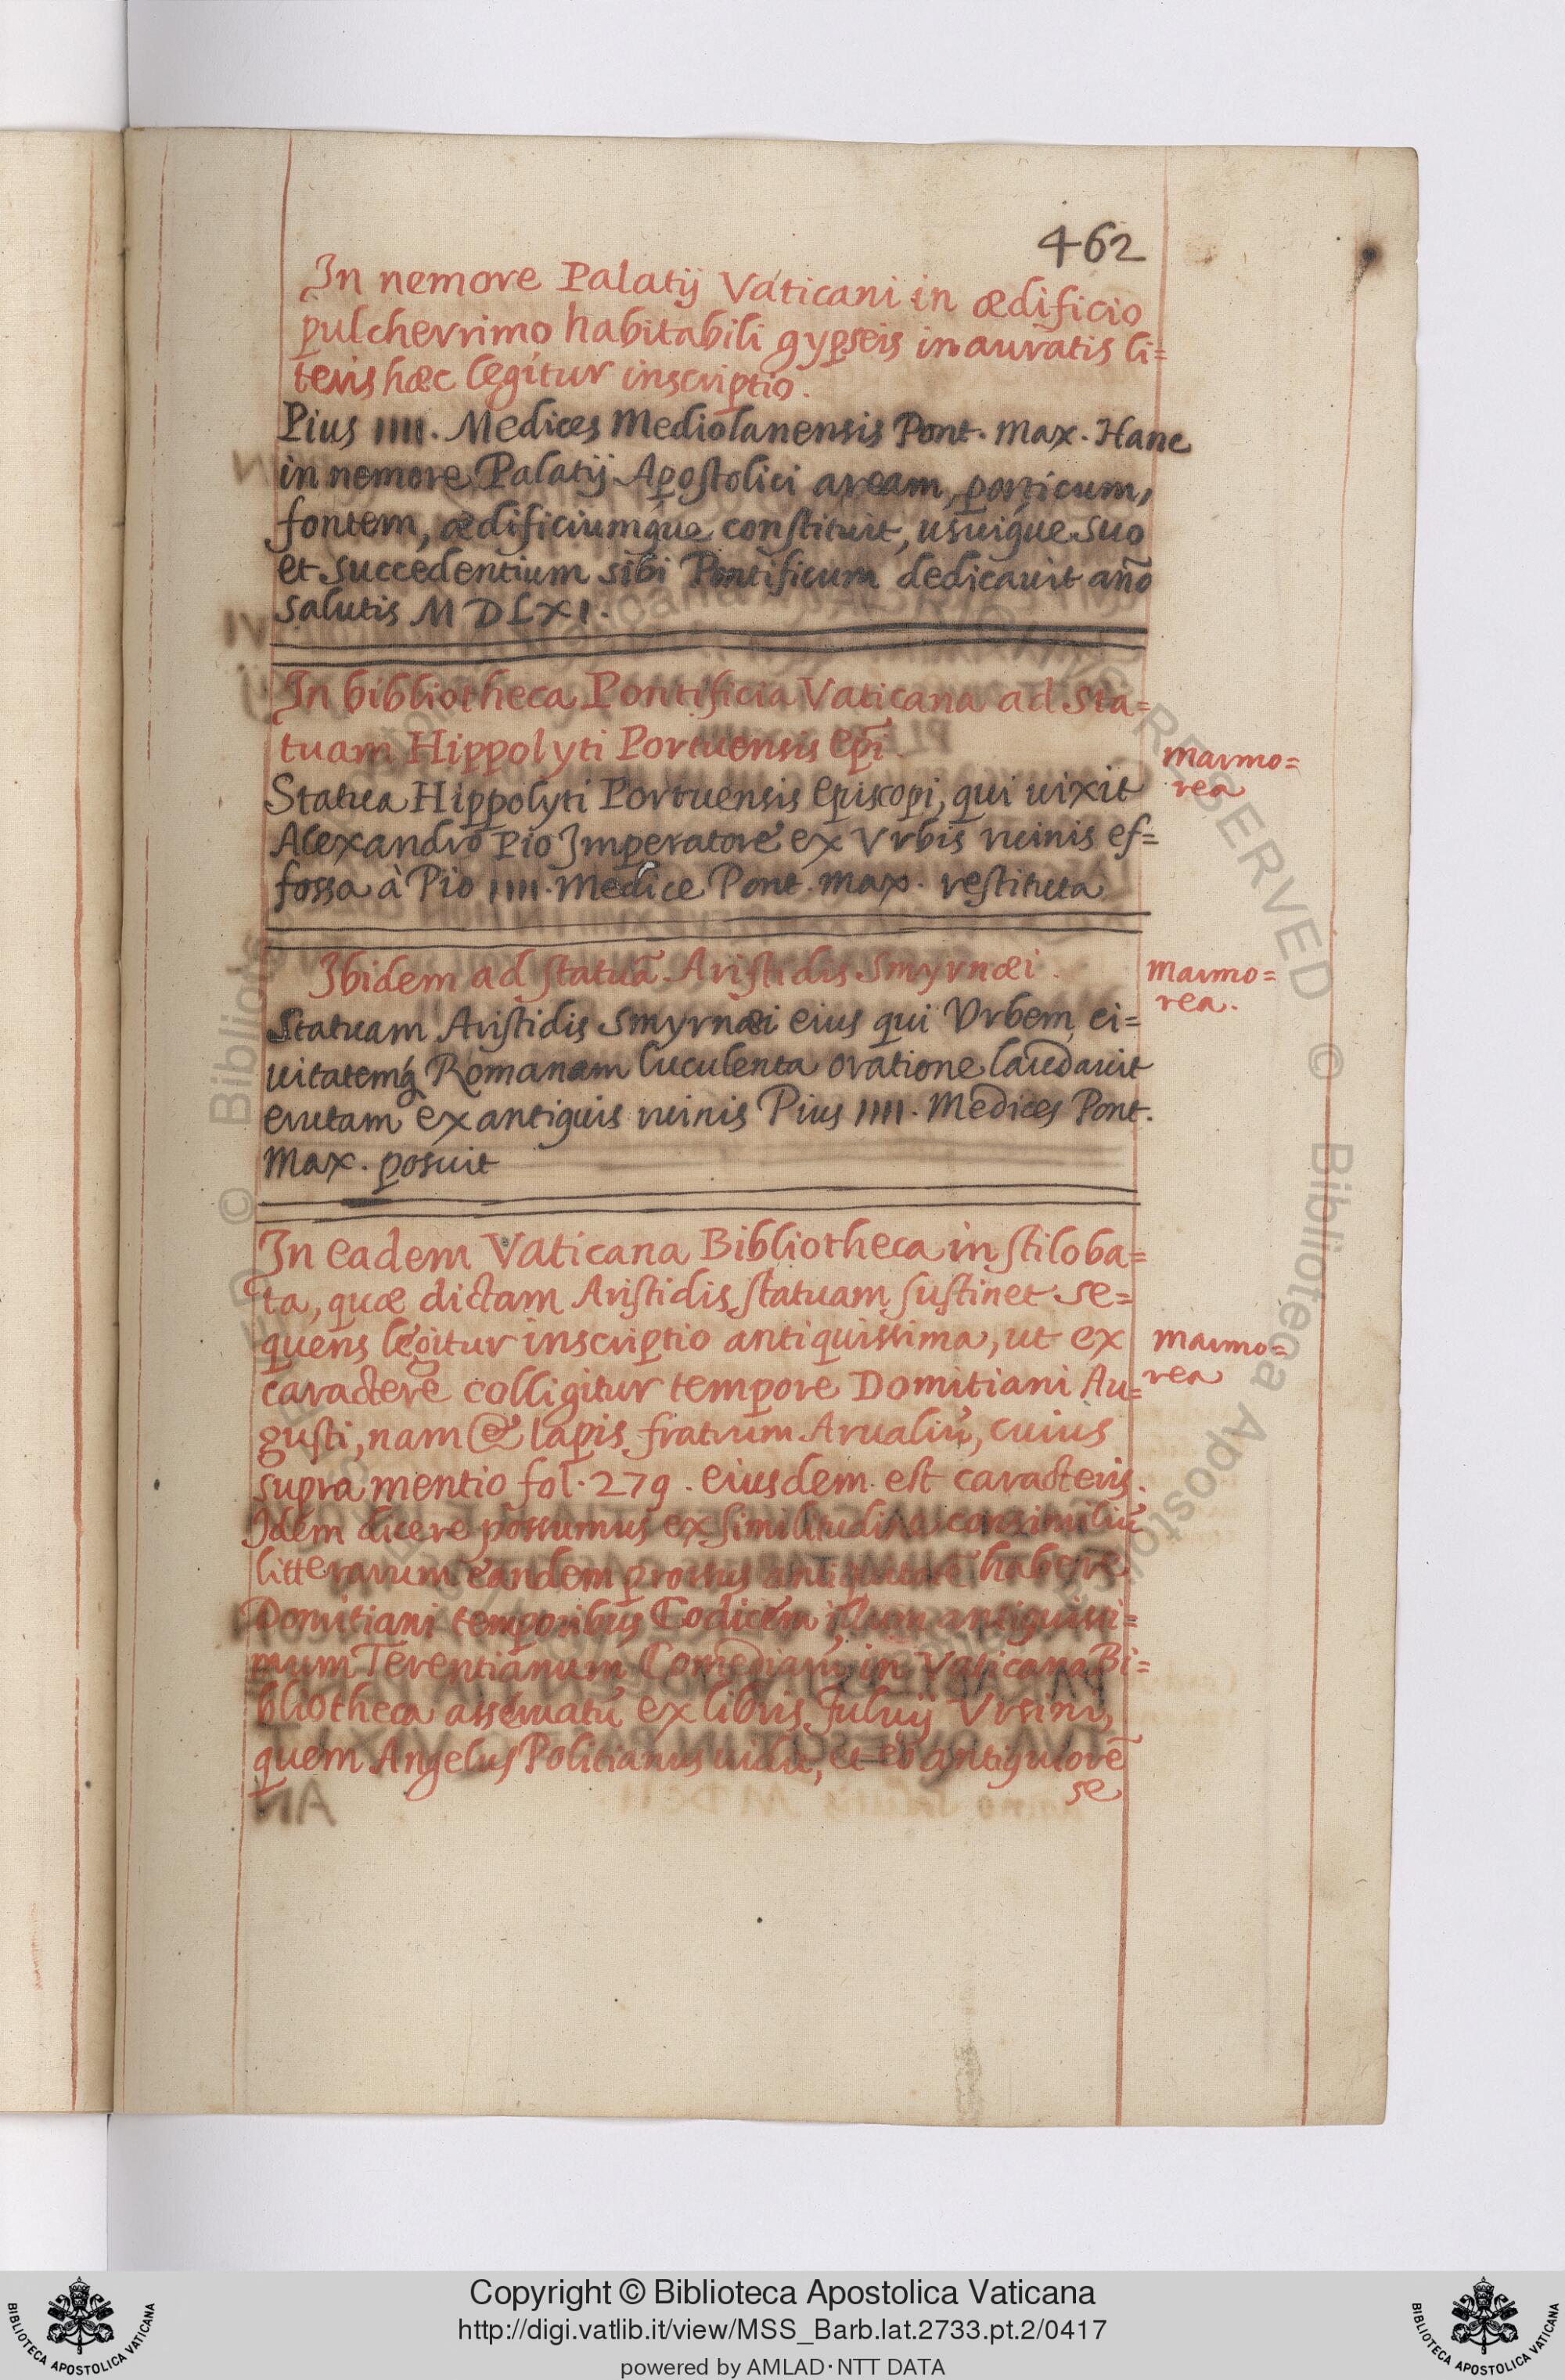 462
In nemore Palatij Vaticani in ædificio
pulcherrimo habitabili gypseis inauratis li=
teris hæc legitur inscriptio.
Pius IIII. Medices Mediolanensis Pont. Max. Hanc
in nemore Palatij Apostolici aream, porticum,
fontem, ædificiumque constituit, usuique suo
et succedentium sibi Pontificum dedicauit año
salutis M D L X I.
In bibliotheca Pontificia Vaticana ad sta=
tuam Hippolyti Portuensis epĩ.
Marmo=
rea
Statua Hippolyti Portuensis Episcopi, qui uixit
Alexandro Pio Imperatore ex Vrbis ruinis ef=
fossa à Pio IIII. Medice Pont. Max. restituta
Ibidem ad statuã Aristidis Smyrnæi.
Marmo=
rea.
Statuam Aristidis Smyrnæi eius qui Vrbem, ci=
uitatemq; Romanam luculenta oratione laudauit
erutam ex antiquis ruinis Pius IIII. Medices Pont.
Max. posuit
In eadem Vaticana Bibliotheca in stiloba=
ta, quæ dictam Aristidis statuam sustinet se=
quens legitur inscriptio antiquissima, ut ex
Marmo=
rea
caractere colligitur tempore Domitiani Au=
gusti, nam & lapis fratrum Arualiũ, cuius
supra mentio fol. 279. eiusdem est caracteris.
Idem dicere possumus ex similitudine consimiliũ
litterarum eandem prorsus antiquitatẽ habere
Domitiani temporibus Codicem illum antiquissi=
mum Terentianum Comediarũ in Vaticana Bi=
bliotheca asseruatũ ex libris Fuluij Vrsini,
quem Angelus Politianus uidit, et eo antiquiorẽ
se
Copyright © Biblioteca Apostolica Vaticana
http://digi.vatlib.it/view/MSS_Barb.lat.2733.pt.2/0417
powered by AMLAD·NTT DATA
BIBLIOTECA APOSTOLICA VATICANA
BIBLIOTECA APOSTOLICA VATICANA